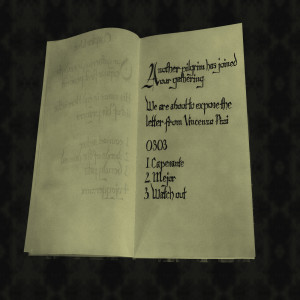 Another pilgrim has joined
our gathering
We are about to expose the
letter from Vincenzo Pezi
0303
1. Esperante
2. Mejor
3. Watch out